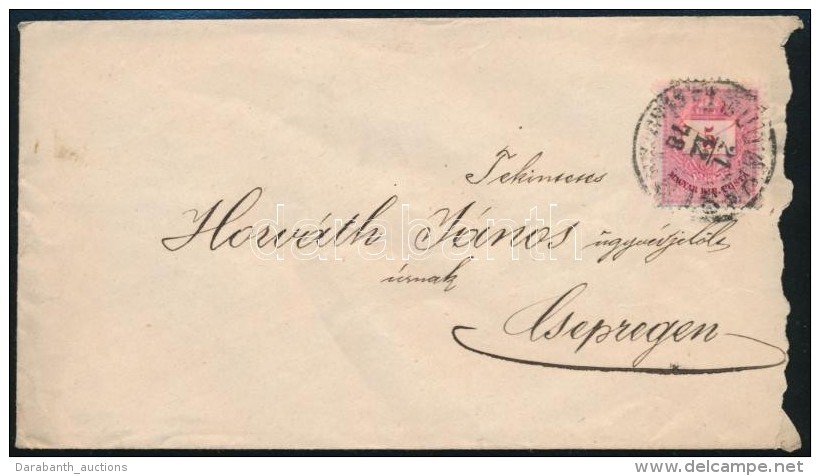 Tekintetes
Horváth János ügyvédjelölt
úrnak
Csepregen
MAGYAR KIR. POSTA
78
12
21
darabanth
Darabanth_auctions
delcampe.net